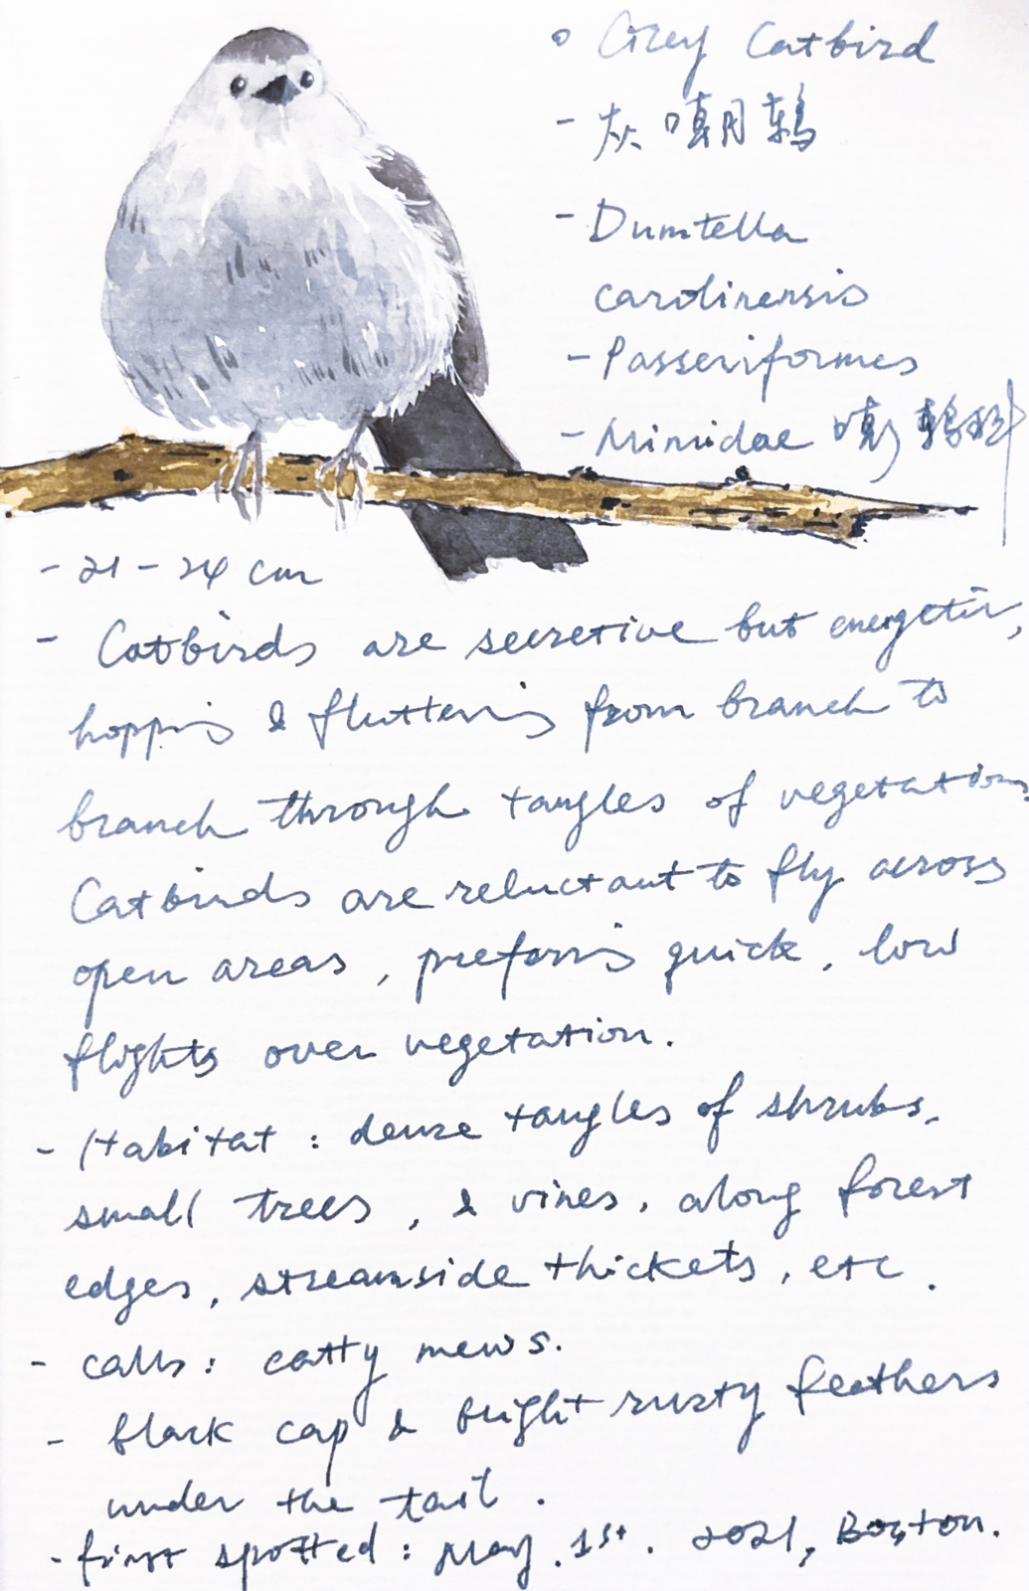 Grey Catbird
- 灰嘲鸫
- Dumtella
carolinensis
- Passeriformes
- Mimidae 嘲鸫科
- 21-24 cm
- Catbirds are secretive but energetic,
hopping & fluttering from branch to
branch through tangles of vegetation.
Catbirds are reluctant to fly across
open areas, preferring quick, low
flights over vegetation.
- Habitat: dense tangles of shrubs,
small trees, & vines, along forest
edges, streamside thickets, etc.
- calls: catty mews.
- black cap & bright rusty feathers
under the tail.
- first spotted: May. 1st. 2021, Boston.